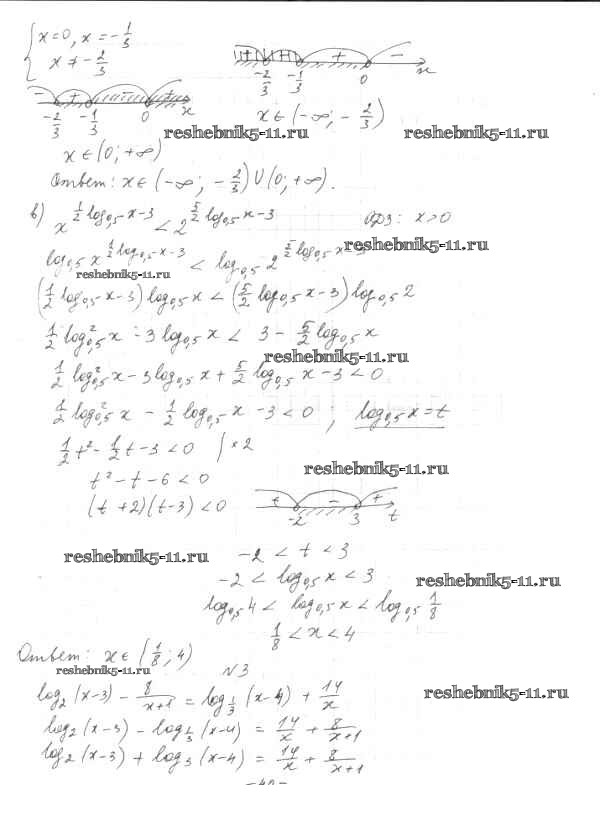 x=0, x=-1/3
x≠-2/3
+ + + -
-2/3 -1/3 0 x
- + - +
-2/3 -1/3 0 x
x∈(-∞; -2/3)
reshebnik5-11.ru reshebnik5-11.ru
x∈(0; +∞)
Ответ: x∈(-∞; -2/3)∪(0; +∞).
в) x^(1/2 log_0,5 x-3) < 2^(5/2 log_0,5 x-3) ОДЗ: x>0
reshebnik5-11.ru
log_0,5 x^(1/2 log_0,5 x-3) < log_0,5 2^(5/2 log_0,5 x-3)
reshebnik5-11.ru
(1/2 log_0,5 x-3) log_0,5 x < (5/2 log_0,5 x-3) log_0,5 2
1/2 log²_0,5 x - 3 log_0,5 x < 3 - 5/2 log_0,5 x
reshebnik5-11.ru
1/2 log²_0,5 x - 3 log_0,5 x + 5/2 log_0,5 x - 3 < 0
1/2 log²_0,5 x - 1/2 log_0,5 x - 3 < 0 ; log_0,5 x = t
1/2 t² - 1/2 t - 3 < 0 | ×2
reshebnik5-11.ru
t² - t - 6 < 0
(t+2)(t-3) < 0
+ - +
-2 3 t
reshebnik5-11.ru
-2 < t < 3
-2 < log_0,5 x < 3
reshebnik5-11.ru
log_0,5 4 < log_0,5 x < log_0,5 1/8
1/8 < x < 4
Ответ: x∈(1/8; 4)
reshebnik5-11.ru
N3
log_2 (x-3) - 8/(x+1) = log_1/3 (x-4) + 14/x
reshebnik5-11.ru
log_2 (x-3) - log_1/3 (x-4) = 14/x + 8/(x+1)
log_2 (x-3) + log_3 (x-4) = 14/x + 8/(x+1)